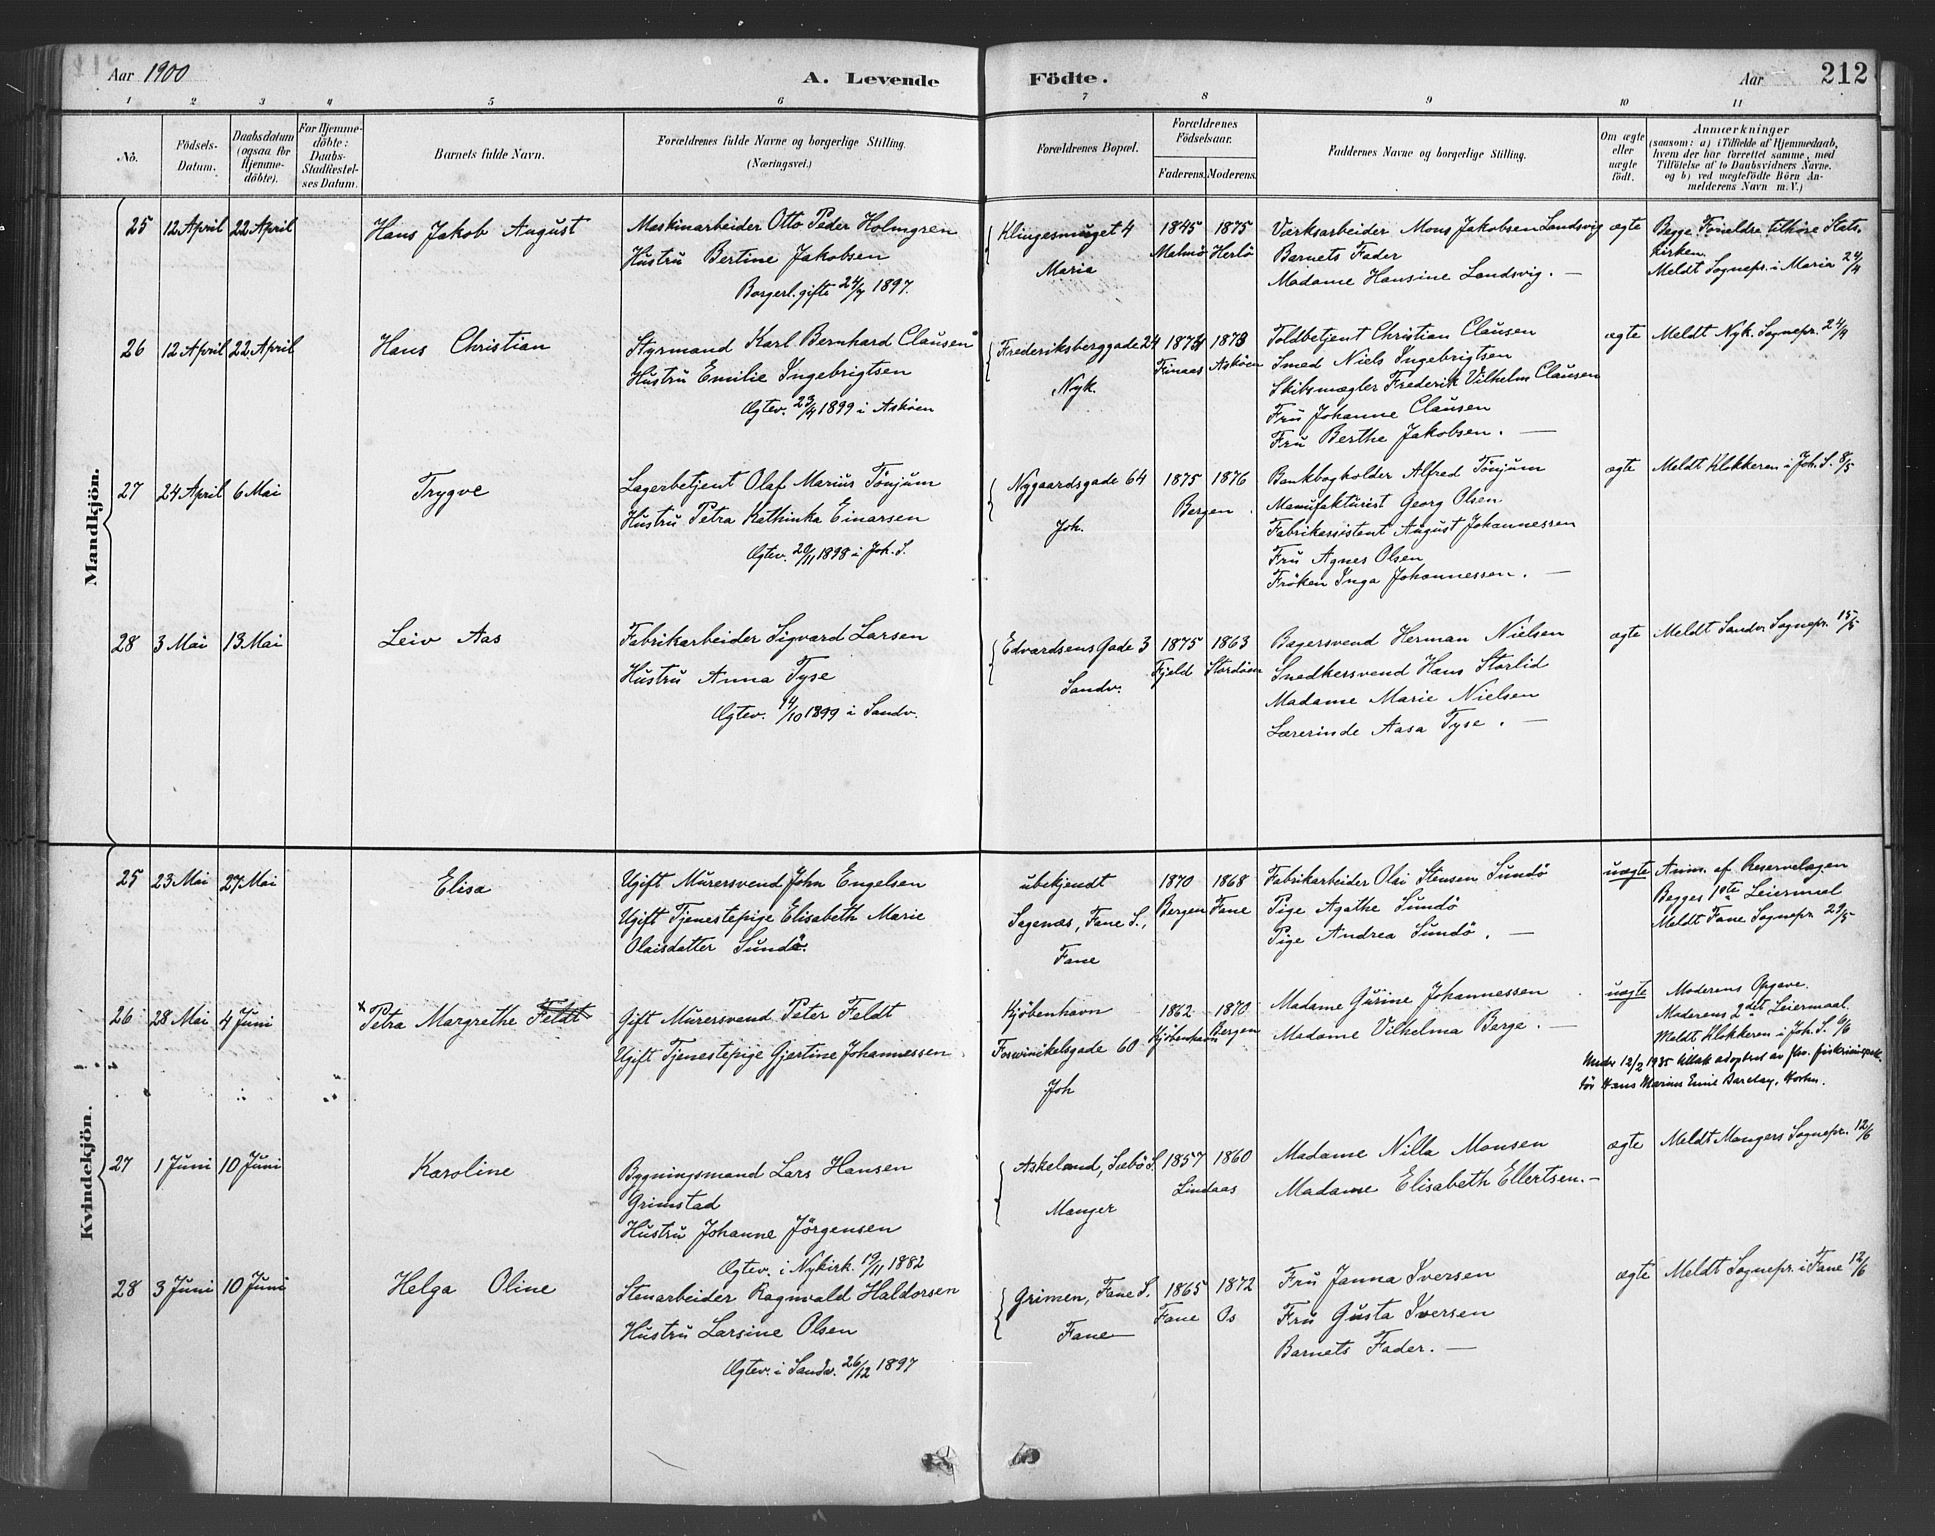 Aar 1900
A. Levende
Födte.
Aar
212
1 2 3 4 5 6 7 8 9 10 11
No.
Födsels-Datum.
Daabsdatum (ogsaa for Hjemme-döbte).
For Hjemme-döbte: Daabs-Stadfæstel-ses Datum.
Barnets fulde Navn.
Forældrenes fulde Navne og borgerlige Stilling.
(Næringsvei.)
Forældrenes Bopæl.
Forældrenes Födselsaar.
Faderens. Moderens.
Faddernes Navne og borgerlige Stilling.
Om ægte eller uægte födt.
Anmærkninger
(saasom: a) i Tilfælde af Hjemmedaab,
hvem der har forrettet samme, med
Tilföielse af to Daabsvidners Navne.
og b) ved uægtefödte Börn An-
melderens Navn m. V.)
Mandkjön.
25 12 April 22 April Hans Jakob August
Maskinarbeider Otto Peder Holmgren
Hustru Bertine Jakobsen
Borgerl. gifte 24/7 1897.
Klingesmuget 4
Maria
1845 1875
Malmö Herlö
Værksarbeider Mons Jakobsen Landsvig
Barnets Fader
Madame Hansine Landsvig. —
ægte
Begge Forældre tilhöre Stats-
kirken.
Meldt Sognepr. i Maria 24/4
26 12 April 22 April Hans Christian
Styrmand Karl Bernhard Clausen
Hustru Emilie Ingebrigtsen
Ægtev. 23/4 1899 i Askøen
Frederiksberggade 24
Nyk.
1874 1873
Finaas Askøen
Toldbetjent Christian Clausen
Smed Niels Ingebrigtsen
Skibsmægler Frederik Vilhelm Clausen
Fru Johanne Clausen
Fru Berthe Jakobsen. —
ægte
Meldt Nyk. Sognepr. 24/4
27 24 April 6 Mai Trygve
Lagerbetjent Olaf Marius Tönjum
Hustru Petra Kathinka Einarsen
Ægtev. 20/11 1898 i Joh. S.
Nygaardsgade 64
Joh.
1875 1876
Bergen
Bankbogholder Alfred Tönjum
Manufakturist Georg Olsen
Fabrikassistent August Johannessen
Fru Agnes Olsen
Fröken Inga Johannessen. —
ægte
Meldt Klokkeren i Joh. S. 8/5
28 3 Mai 13 Mai Leiv Aas
Fabrikarbeider Sigvard Larsen
Hustru Anna Tyse
Ægtev. 14/10 1899 i Sandv.
Edvardsens Gade 3
Sandv.
1875 1863
Fjeld Stordöen
Bagersvend Herman Nielsen
Snedkersvend Hans Storlid
Madame Marie Nielsen
Lærerinde Aasa Tyse. —
ægte
Meldt Sandv. Sognepr. 15/5
Kvindekjön.
25 23 Mai 27 Mai Elisa
Ugift Murersvend John Engelsen
Ugift Tjenestepige Elisabeth Marie
Olaisdatter Sundö.
ubekjendt
Sagenæs, Fane S.,
Fane
1870 1868
Bergen Fane
Fabrikarbeider Olai Stensen Sundö
Pige Agathe Sundö
Pige Andrea Sundö. —
uægte
Anm. af Reservelægen
Begges 1ste Leiermaal
Meldt Fane Sognepr. 29/5
26 28 Mai 4 Juni × Petra Margrethe Feldt
Gift Murersvend Peter Feldt
Ugift Tjenestepige Gjertine Johannessen
Kjöbenhavn
60
Joh
1862 1870
Kjöbenhavn Bergen
Madame Gurine Johannessen
Madame Vilhelma Berge. —
uægte
Moderens Opgave.
Moderens 2det Leiermaal
Meldt Klokkeren i Joh. S. 6/6
Under 12/2 1935 adoptert av
Hans Marius Emil Barclay,
27 1 Juni 10 Juni Karoline
Bygningsmand Lars Hansen
Grimstad
Hustru Johanne Jörgensen
Ægtev. i Nykirk. 19/11 1882
Askeland, Sæbö S.
Manger
1857 1860
Lindaas
Madame Nilla Monsen
Madame Elisabeth Ellertsen. —
ægte
Meldt Mangers Sognepr. 12/6
28 3 Juni 10 Juni Helga Oline
Stenarbeider Ragnvald Haldorsen
Hustru Larsine Olsen
Ægtev. i Sandv. 26/12 1897
Grimen, Fane S.
Fane
1865 1872
Fane Os
Fru Janna Iversen
Fru Gusta Iversen
Barnets Fader. —
ægte
Meldt Sognepr. i Fane 12/6